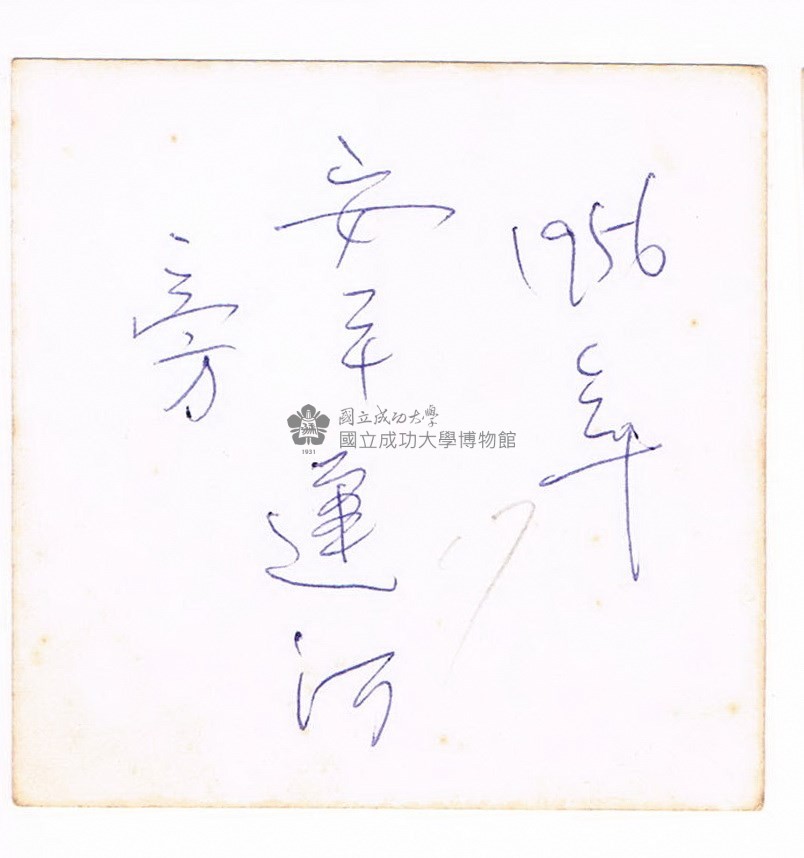 1956年
安平運河
旁
17
國立成功大學
國立成功大學博物館
1931